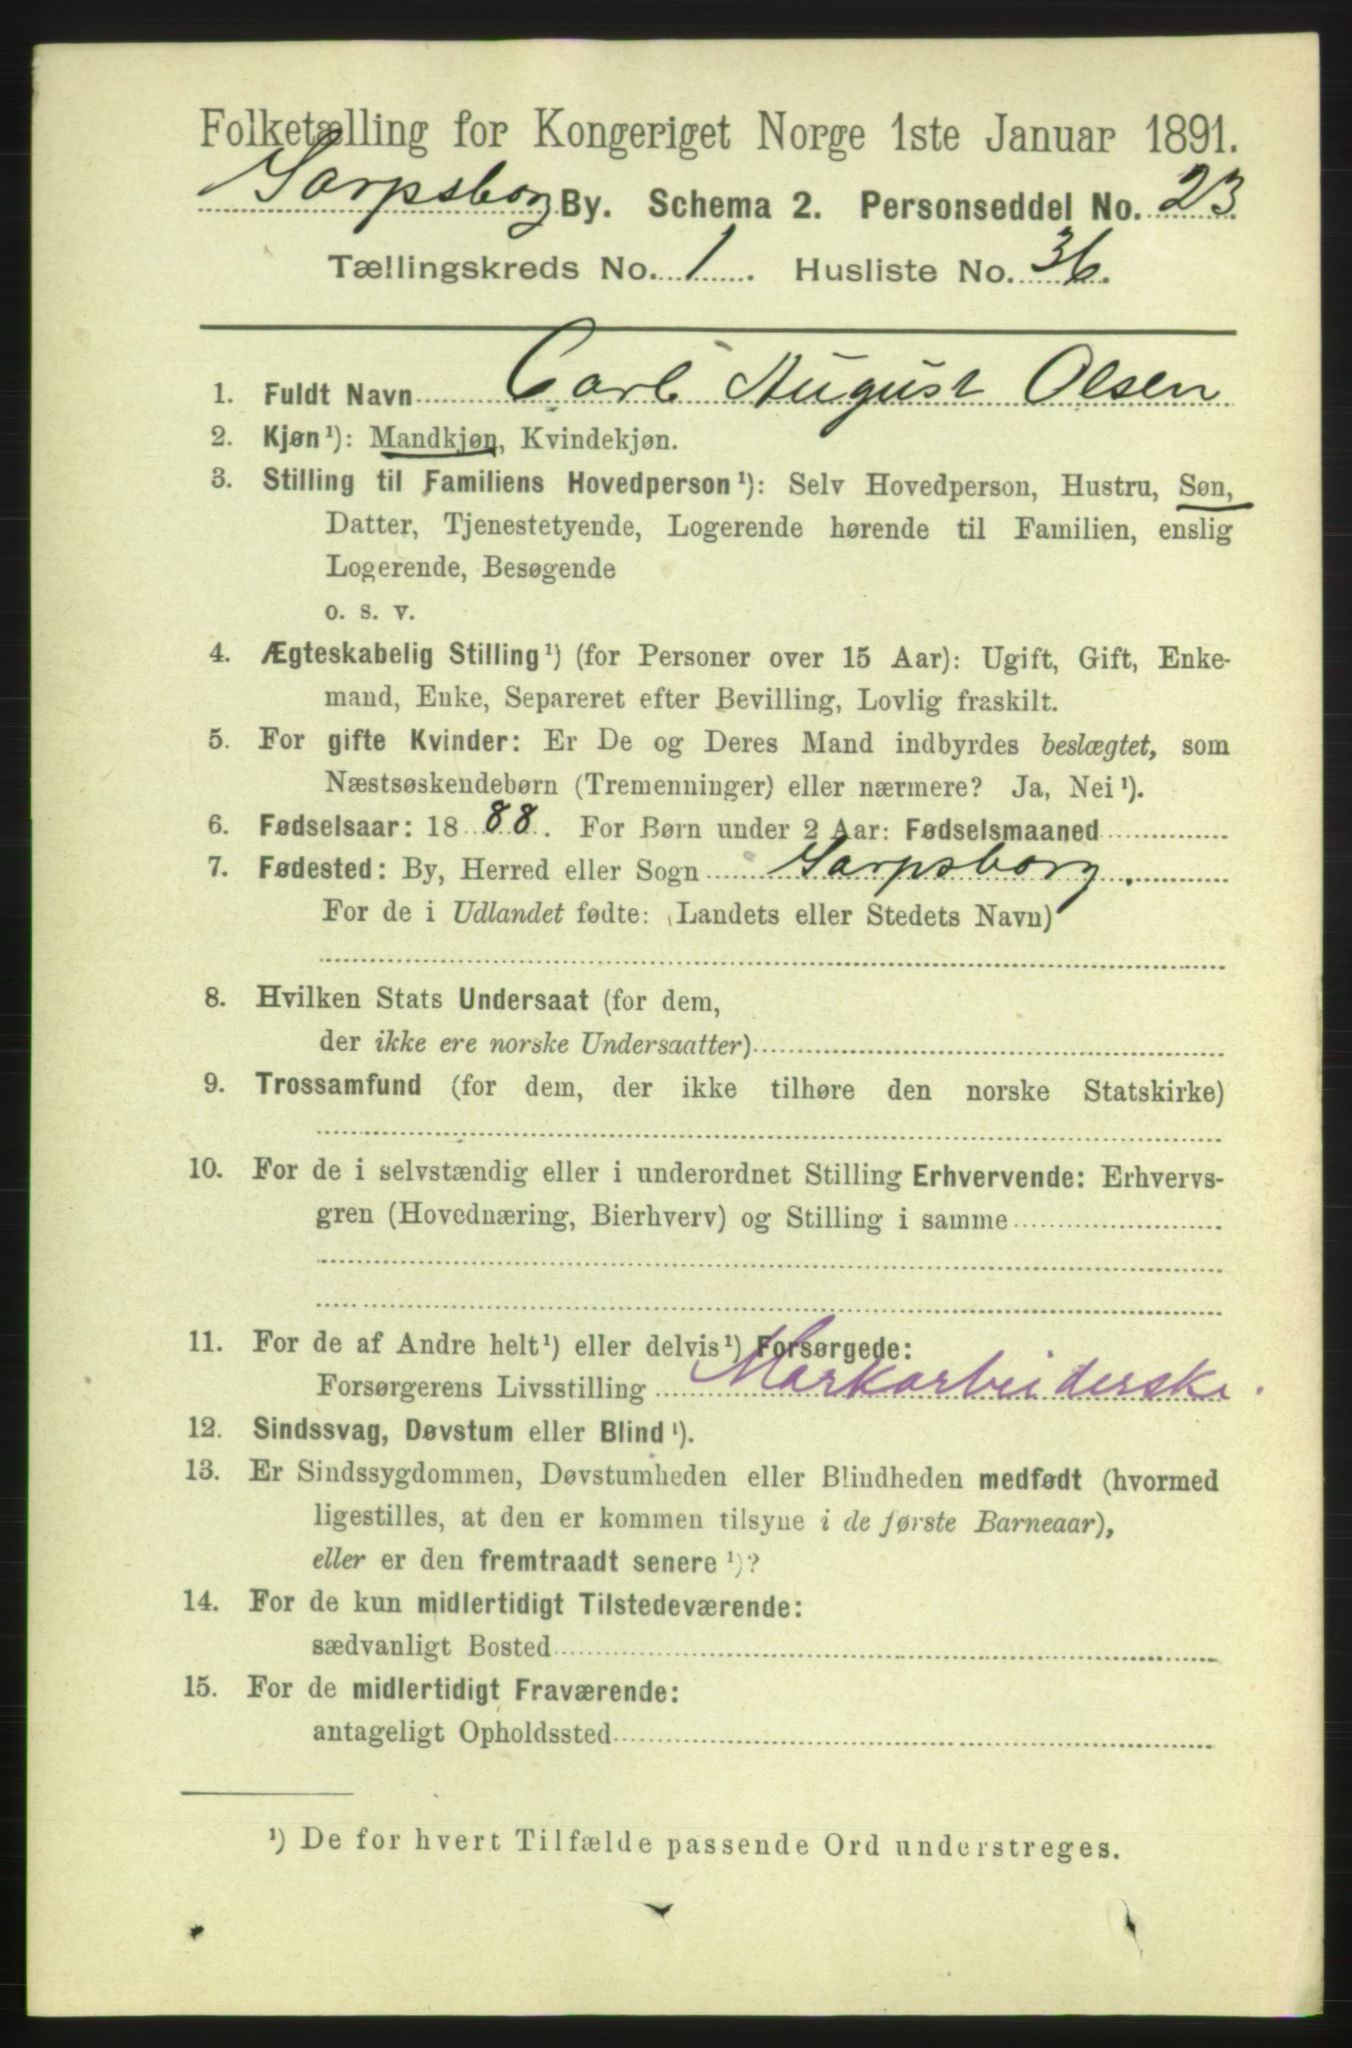 Folketælling for Kongeriget Norge 1ste Januar 1891.
Sarpsborg By. Schema 2. Personseddel No. 23.
Tællingskreds No. 1. Husliste No. 36.
1. Fuldt Navn Carl August Olsen
2. Kjøn¹): Mandkjøn, Kvindekjøn.
3. Stilling til Familiens Hovedperson¹): Selv Hovedperson, Hustru, Søn,
Datter, Tjenestetyende, Logerende hørende til Familien, enslig
Logerende, Besøgende
o. s. v.
4. Ægteskabelig Stilling¹) (for Personer over 15 Aar): Ugift, Gift, Enke-
mand, Enke, Separeret efter Bevilling, Lovlig fraskilt.
5. For gifte Kvinder: Er De og Deres Mand indbyrdes beslægtet, som
Næstsøskendebørn (Tremenninger) eller nærmere? Ja, Nei¹).
6. Fødselsaar: 1888. For Børn under 2 Aar: Fødselsmaaned
7. Fødested: By, Herred eller Sogn Sarpsborg.
For de i Udlandet fødte: (Landets eller Stedets Navn)
8. Hvilken Stats Undersaat (for dem,
der ikke ere norske Undersaatter)
9. Trossamfund (for dem, der ikke tilhøre den norske Statskirke)
10. For de i selvstændig eller i underordnet Stilling Erhvervende: Erhvervs-
gren (Hovednæring, Bierhverv) og Stilling i samme
11. For de af Andre helt¹) eller delvis¹) Forsørgede:
Forsørgerens Livsstilling Markarbeiderske.
12. Sindssvag, Døvstum eller Blind¹).
13. Er Sindssygdommen, Døvstumheden eller Blindheden medfødt (hvormed
ligestilles, at den er kommen tilsyne i de første Barneaar),
eller er den fremtraadt senere¹)?
14. For de kun midlertidigt Tilstedeværende:
sædvanligt Bosted
15. For de midlertidigt Fraværende:
antageligt Opholdssted
¹) De for hvert Tilfælde passende Ord understreges.